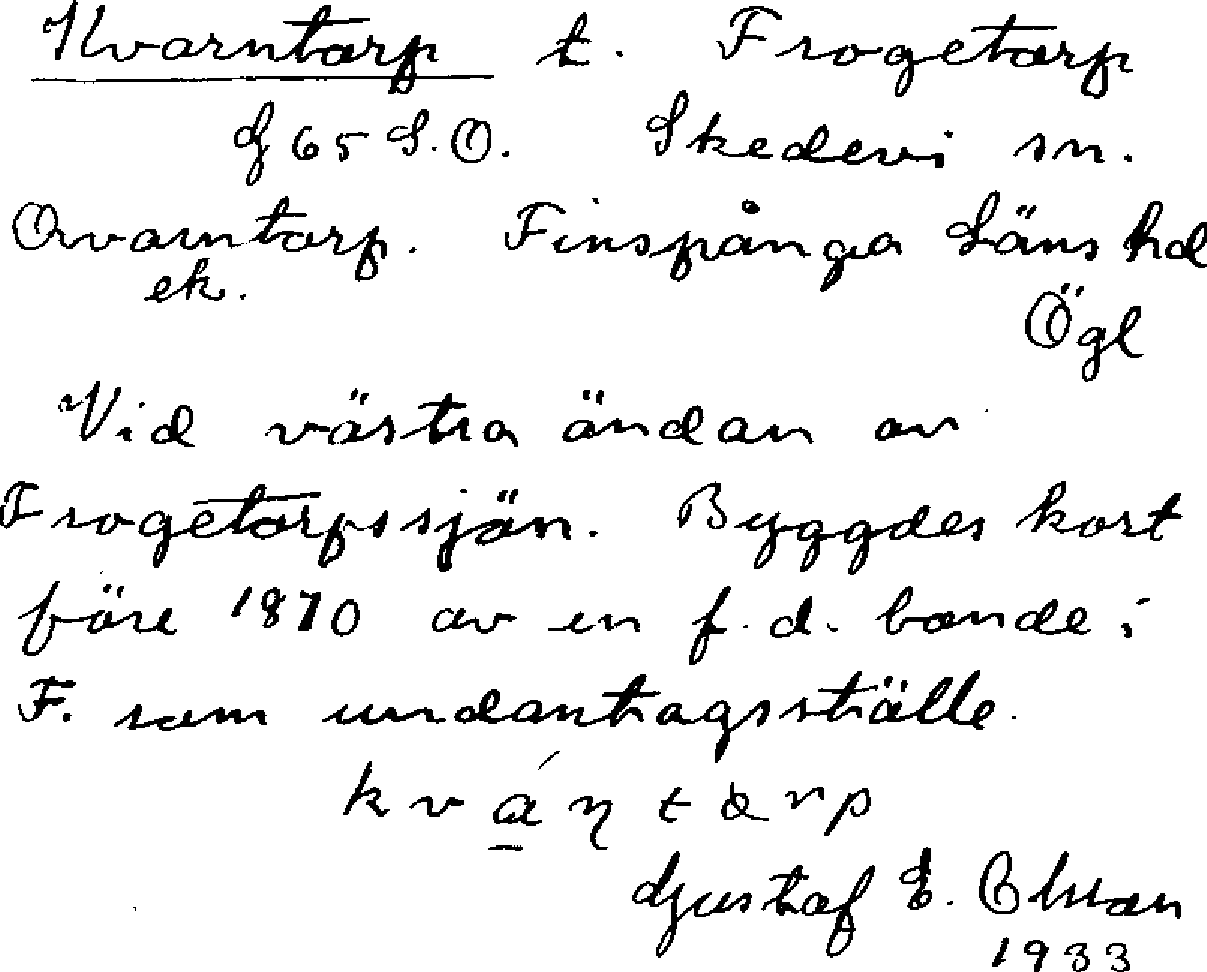 Kvarntorp t. Frogetorp
G 65 S.O. Skedevi sn.
Qvarntorp. Finspånga Läns hd
ek. Ögl
Vid västra ändan av
Frogetorpssjön. Byggdes kort
före 1870 av en f.d. bonde i
F. som undantagsställe.
Gustaf E. Olsson
1933